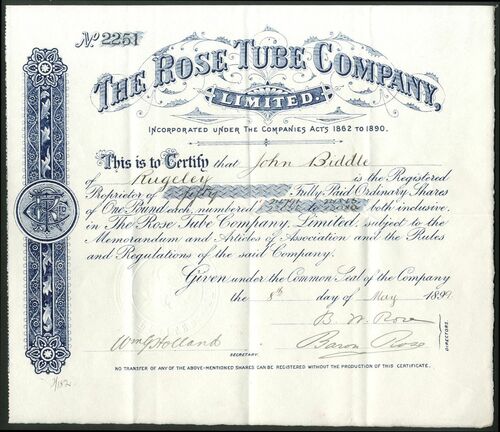 No 2251
THE ROSE TUBE COMPANY,
LIMITED.
INCORPORATED UNDER THE COMPANIES ACTS 1862 TO 1890.
This is to Certify that John Biddle
of Rugeley is the Registered
Proprietor of Fifty Fully Paid Ordinary Shares
of One Pound each, numbered to both inclusive,
in The Rose Tube Company, Limited, subject to the
Memorandum and Articles of Association and the Rules
and Regulations of the said Company.
Given under the Common Seal of the Company
the 8th day of May 1897
B. W. Rose
Wm G Holland
Baron Rose
DIRECTORS
SECRETARY.
NO TRANSFER OF ANY OF THE ABOVE-MENTIONED SHARES CAN BE REGISTERED WITHOUT THE PRODUCTION OF THIS CERTIFICATE.